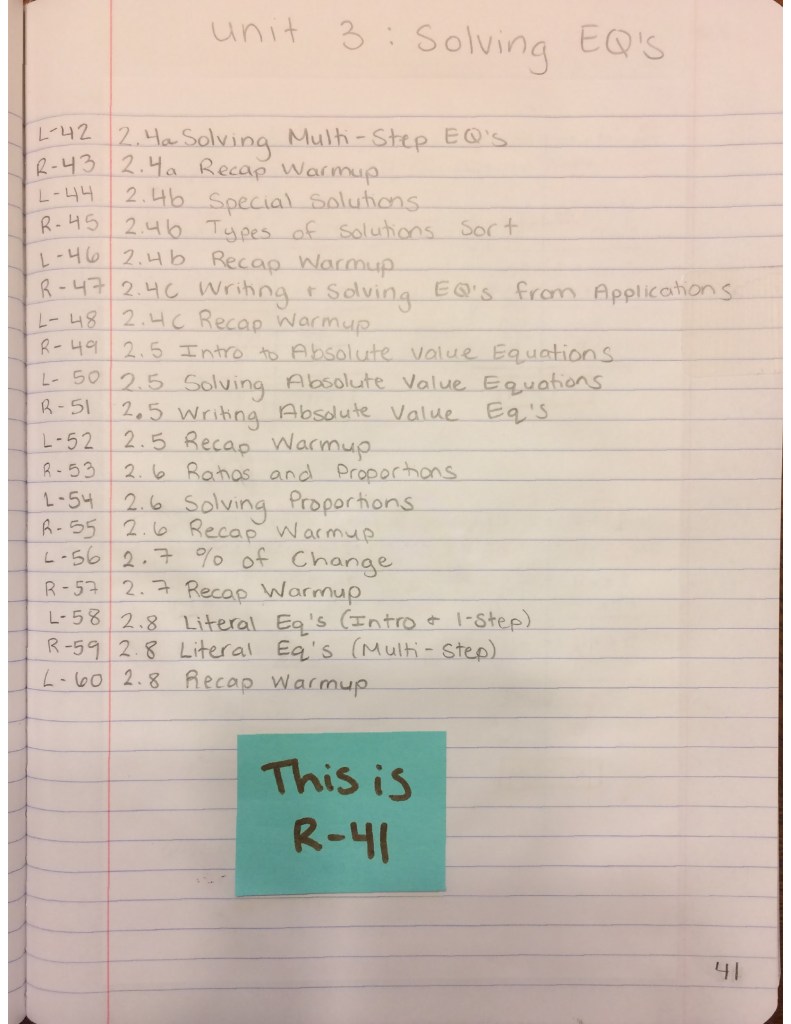 Unit 3 : Solving EQ's
L-42 2.4a Solving Multi-Step EQ's
R-43 2.4a Recap Warmup
L-44 2.4b Special Solutions
R-45 2.4b Types of Solutions Sort
L-46 2.4b Recap Warmup
R-47 2.4c Writing + Solving EQ's from Applications
L-48 2.4c Recap Warmup
R-49 2.5 Intro to Absolute Value Equations
L-50 2.5 Solving Absolute Value Equations
R-51 2.5 Writing Absolute Value Eq's
L-52 2.5 Recap Warmup
R-53 2.6 Ratios and Proportions
L-54 2.6 Solving Proportions
R-55 2.6 Recap Warmup
L-56 2.7 % of Change
R-57 2.7 Recap Warmup
L-58 2.8 Literal Eq's (Intro + 1-Step)
R-59 2.8 Literal Eq's (Multi-Step)
L-60 2.8 Recap Warmup
This is
R-41
41